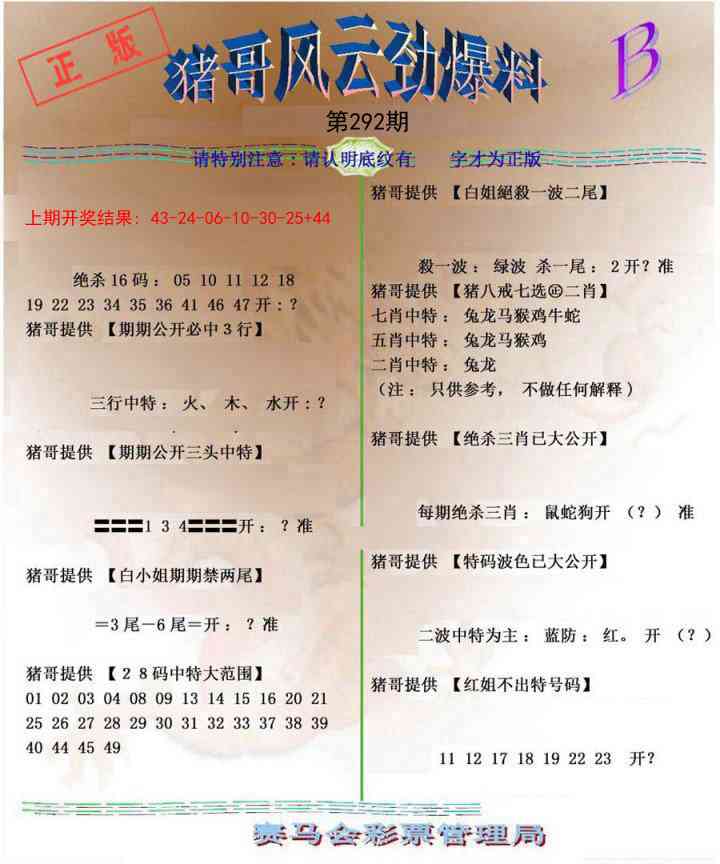 正版
猪哥风云劲爆料
B
第292期
请特别注意：请认明底纹有 字才为正版
上期开奖结果: 43-24-06-10-30-25+44
绝杀16码： 05 10 11 12 18
19 22 23 34 35 36 41 46 47开：？
猪哥提供 【期期公开必中３行】
三行中特： 火、 木、 水开：？
猪哥提供 【期期公开三头中特】
〓〓〓1 3 4〓〓〓开： ？准
猪哥提供 【白小姐期期禁两尾】
＝3尾－6尾＝开： ？准
猪哥提供 【２８码中特大范围】
01 02 03 04 08 09 13 14 15 16 20 21
25 26 27 28 29 30 31 32 33 37 38 39
40 44 45 49
猪哥提供 【白姐絕殺一波二尾】
殺一波： 绿波 杀一尾： 2开？准
猪哥提供 【猪八戒七选㊣二肖】
七肖中特： 兔龙马猴鸡牛蛇
五肖中特： 兔龙马猴鸡
二肖中特： 兔龙
（注： 只供参考， 不做任何解释）
猪哥提供 【绝杀三肖已大公开】
每期绝杀三肖： 鼠蛇狗开 （？） 准
猪哥提供 【特码波色已大公开】
二波中特为主： 蓝防： 红。 开 （？）
猪哥提供 【红姐不出特号码】
11 12 17 18 19 22 23 开？
赛马会彩票管理局